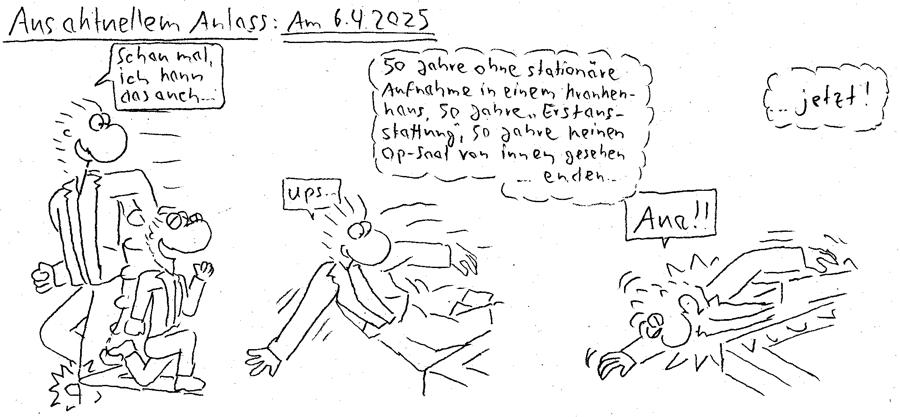 Aus aktuellem Anlass: Am 6.4.2025
Schau mal,
ich kann
das auch...
ups...
50 Jahre ohne stationäre
Aufnahme in einem Kranken-
haus, 50 Jahre „Erstaus-
stattung", 50 Jahre keinen
Op-Saal von innen gesehen
... enden...
Aua!!
... jetzt!